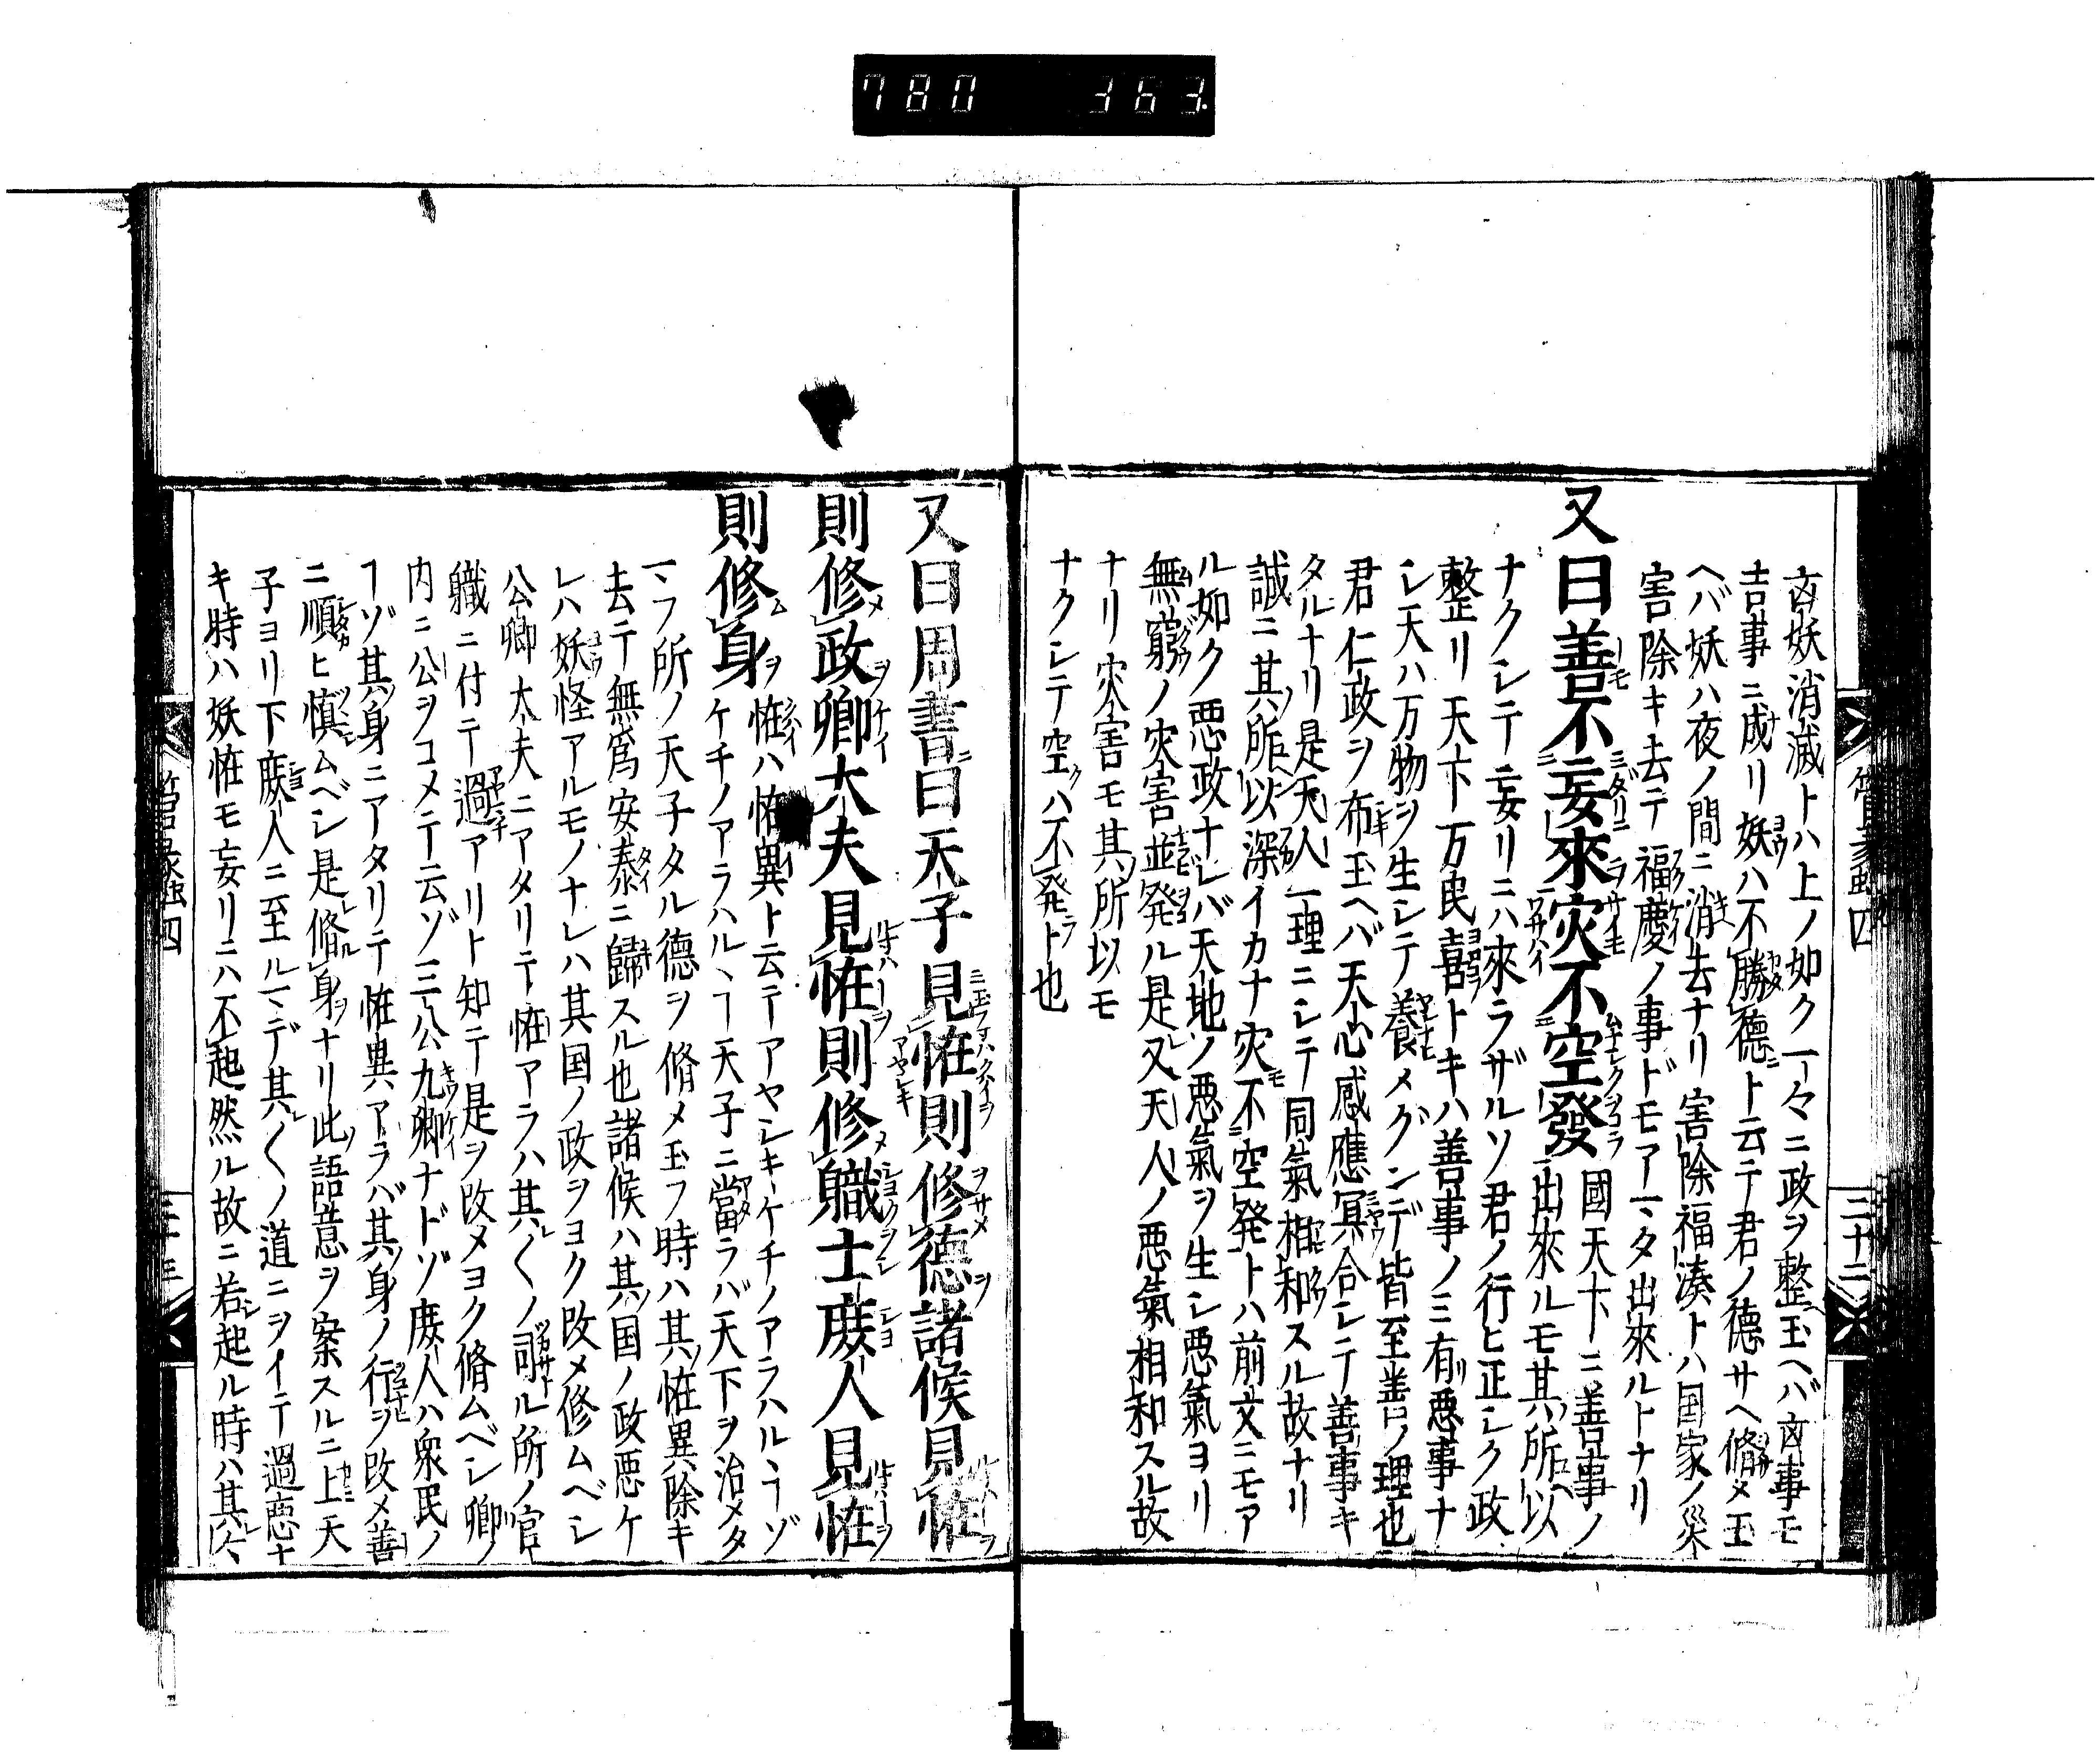 780 363.
凶妖消滅トハ上ノ如ク一々ニ政ヲ整玉ヘバ凶事モ
吉事ニ成リ妖ハ不勝徳ト云テ君ノ徳サヘ脩メ玉
ヘバ妖ハ夜ノ間ニ消去ナリ害除福湊トハ国家ノ災
害除キ去テ福慶ノ事ドモアマタ出來ルトナリ
又曰善不妄來灾不空發
國天下ニ善事ノ
出來ルモ其所以
ナクシテ妄リニハ來ラザルソ君ノ行ヒ正シク政
整リ天下万民喜トキハ善事ノミ有悪事ナ
シ天ハ万物ヲ生シテ養メグンデ皆至善ノ理也
君仁政ヲ布玉ヘバ天心感應冥合シテ善事キ
タルナリ是天人一理ニシテ同氣相和スル故ナリ
誠ニ其所以深イカナ灾不空発トハ前文ニモア
ル如ク悪政ナレバ天地ソ悪氣ヲ生シ悪氣ヨリ
無窮ノ灾害並発ル是又天人ノ悪氣相和スル故
ナリ灾害モ其所以モ
ナクシテ空ハ不発ト也
又曰周書曰天子見恠則修德諸侯見恠
則修政卿大夫見恠則修軄士庻人見恠
則修身
恠ハ恠異ト云テアヤシキケチノアラハルヽヿゾ
ケチノアラハルヽヿ天子ニ當ラバ天下ヲ治メタ
マフ所ノ天子タル德ヲ脩メ玉フ時ハ其恠異除キ
去テ無爲安泰ニ歸スル也諸侯ハ其国ノ政悪ケ
レハ妖怪アルモノナレハ其国ノ政ヲヨク改メ修ムベシ
公卿大夫ニアタリテ恠アラハ其〱ノ司ル所ノ官
軄ニ付テ過アリト知テ是ヲ改メヨク脩ムベシ卿ノ
内ニ公ヲコメテ云ゾ三公九卿ナドゾ庻人ハ衆民ノ
ヿゾ其身ニアタリテ恠異アラバ其身ノ行ヲ改メ善
ニ順ヒ慎ムベシ是脩身ナリ此語意ヲ案スルニ上天
子ヨリ下庻人ニ至ルマデ其〱ノ道ニヲイテ過悪ナ
キ時ハ妖恠モ妄リニハ不起然ル故ニ若起ル時ハ其
二十二